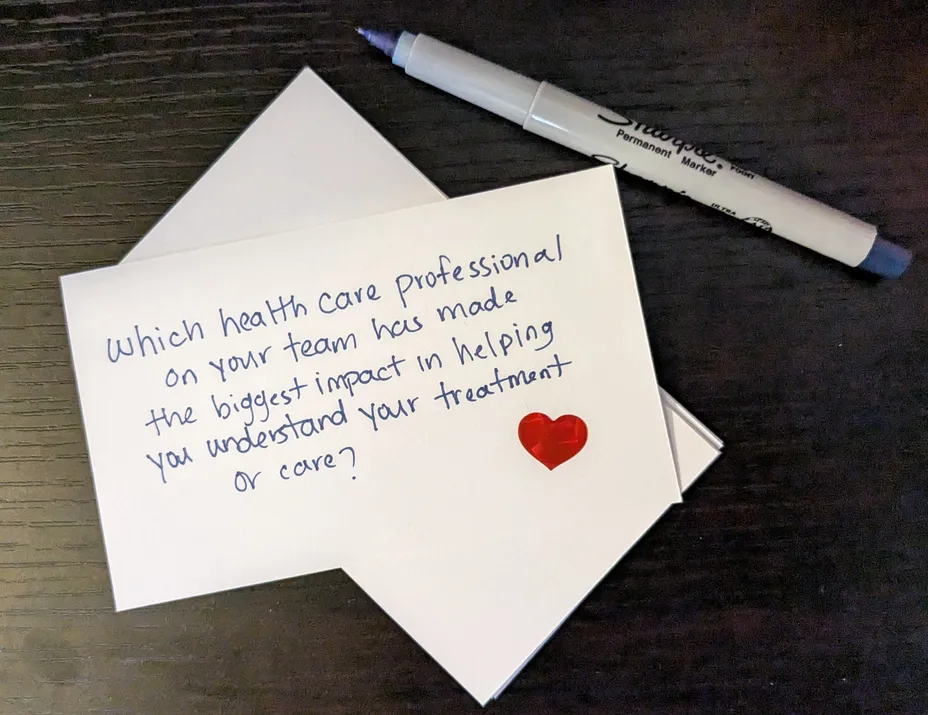 Which health care professional
on your team has made
the biggest impact in helping
you understand your treatment
or care?
Sharpie.
Permanent Marker